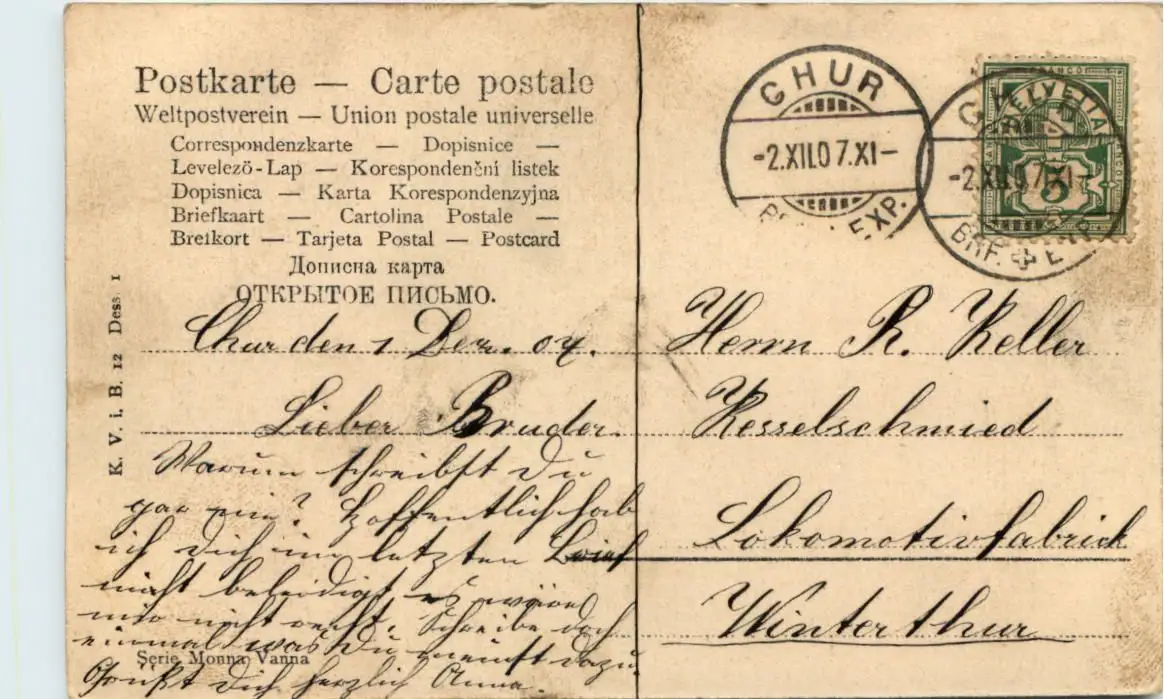 Postkarte — Carte postale
Weltpostverein — Union postale universelle
Correspondenzkarte — Dopisnice —
Levelező-Lap — Korespondenční listek
Dopisnica — Karta Korespondenzyjna
Briefkaart — Cartolina Postale —
Brefkort — Tarjeta Postal — Postcard
Дописна карта
ОТКРЫТОЕ ПИСЬМО.
K. V. i. B. 12 Dess. 1
Chur den 1 Dez. 07.
Lieber Bruder.
Warum schreibst Du
gar nie? Hoffentlich hab
ich Dich im letzten Brief
nicht beleidigt es wäre
mir nicht recht. Schreibe doch
einmal was Du meinst dazu.
Grüßt Dich herzlich Anna.
Serie Monna Vanna
CHUR
-2.XII.07.XI-
EXP.
CH
-2.XII.07.XI-
BRF. E
HELVETIA
FRANCO
5
Herrn R. Keller
Kesselschmied
Lokomotivfabrick
Winterthur